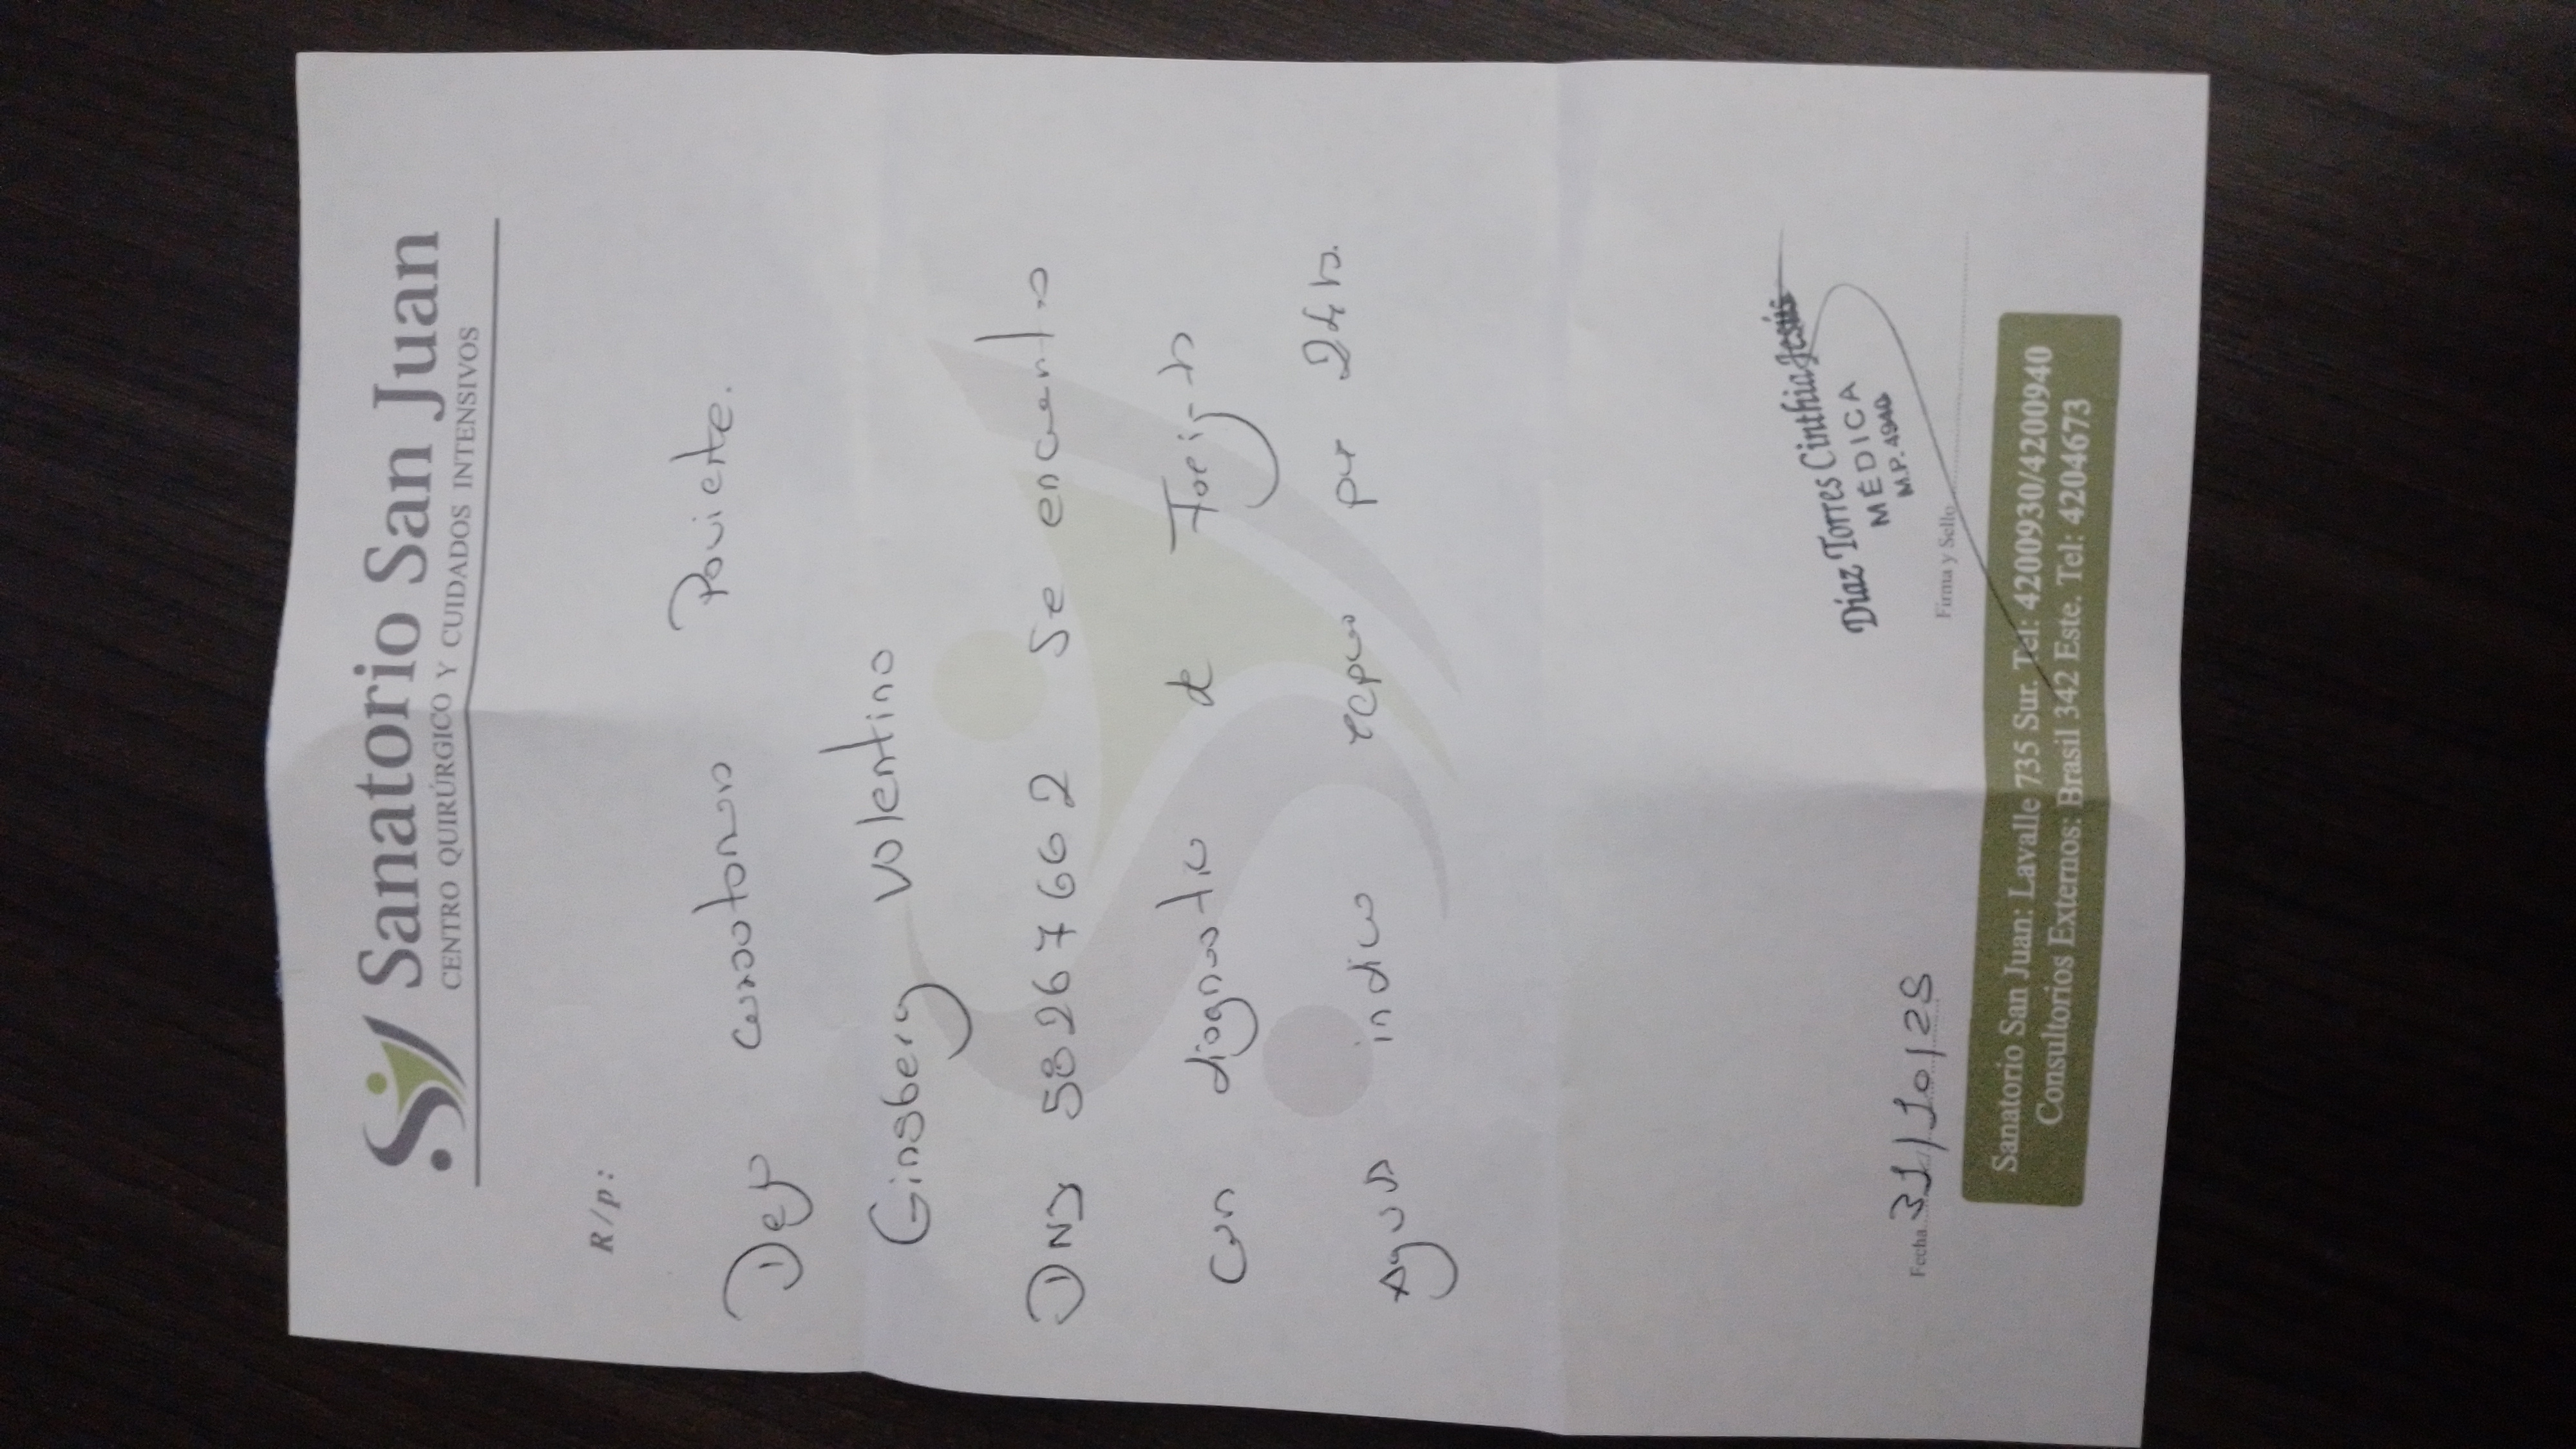 Sanatorio San Juan
CENTRO QUIRÚRGICO Y CUIDADOS INTENSIVOS
R/p:
Dejo constancia Paciente.
Ginsberg Valentino
DNI 58267662 Se encuentra
con diagnostico de
Aguda indico reposo por 24 hs.
Diaz Torres Cinthia Jesús
MÉDICA
M.P. 4940
Fecha 31/10/25
Firma y Sello
Sanatorio San Juan: Lavalle 735 Sur. Tel: 4200930/4200940
Consultorios Externos: Brasil 342 Este. Tel: 4204673